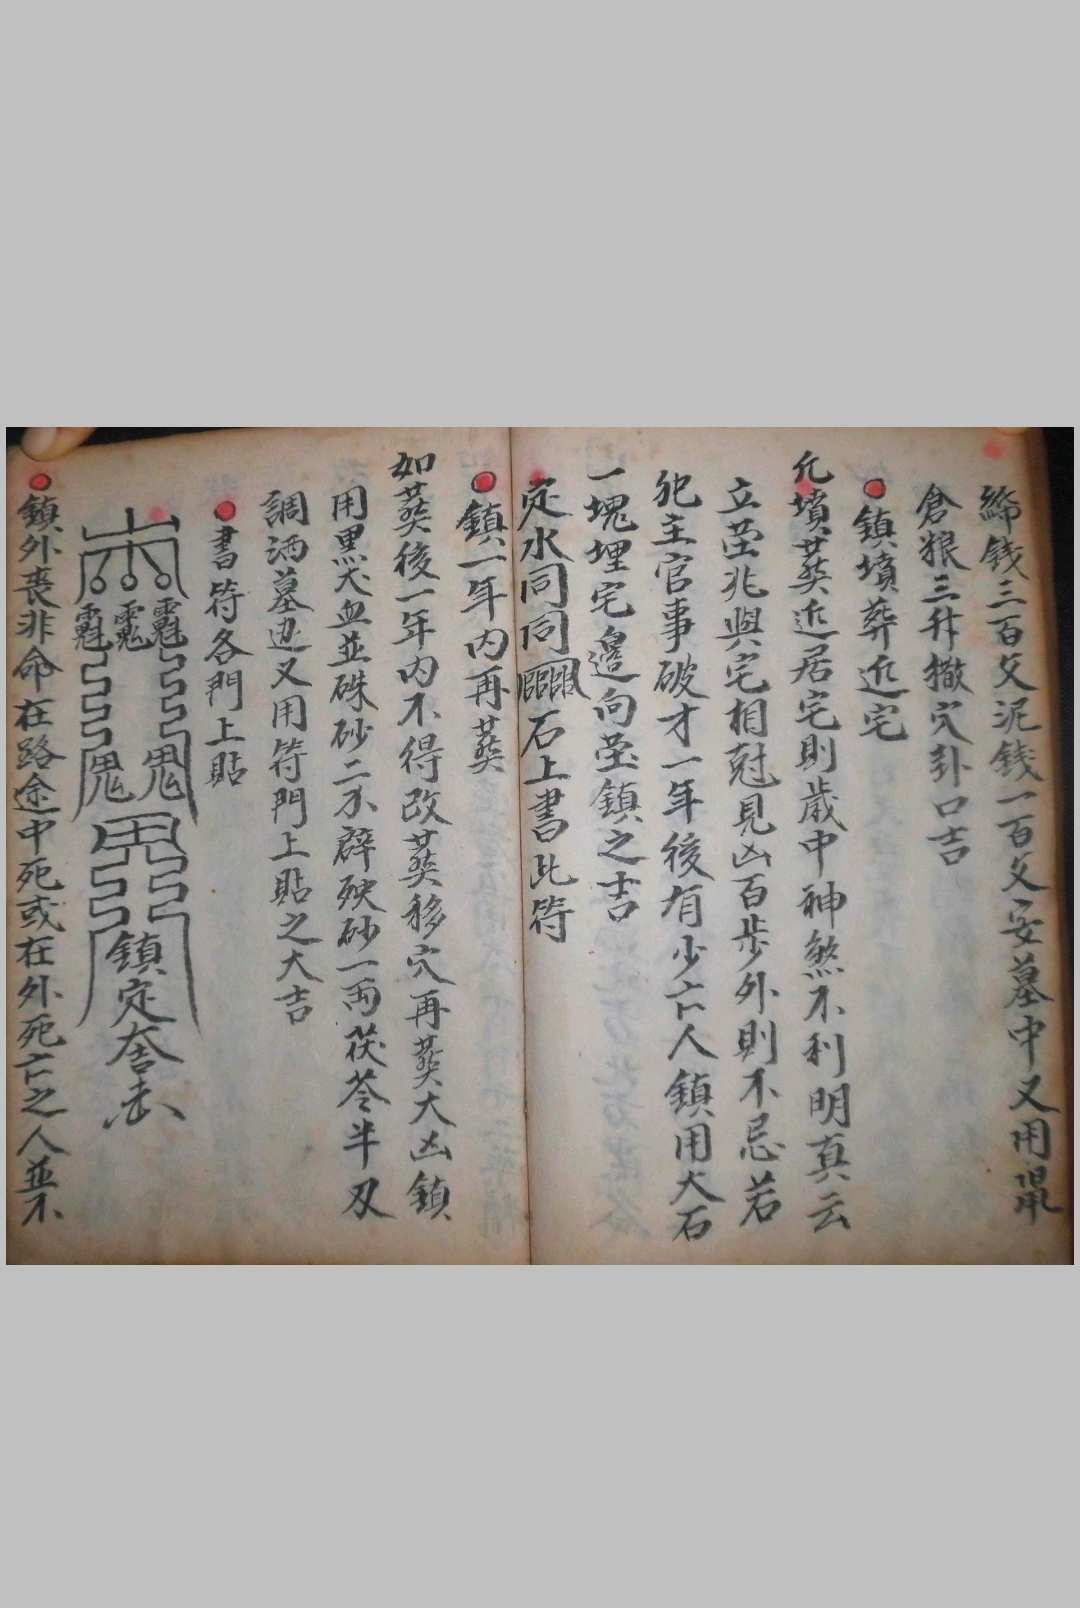 錢三百文泥錢一百文安墓中又用鼠
倉粮三升撒穴卦口吉
鎮墳葬近宅
凢墳葬近居宅則歲中神煞不利明真云
立塋兆與宅相尅見凶百步外則不忌若
犯主官事破才一年後有少亡人鎮用大石
一塊埋宅邉向塋鎮之吉
定水同同石上書此符
鎮一年內再葬
如葬後一年內不得改葬移穴再葬大凶鎮
用黑犬血並硃砂二辟殃砂一両茯苓半刄
調洒墓边又用符門上貼之大吉
書符各門上貼
鬼鬼
鎮定
鎮外喪非命在路途中死或在外死亡之人並不